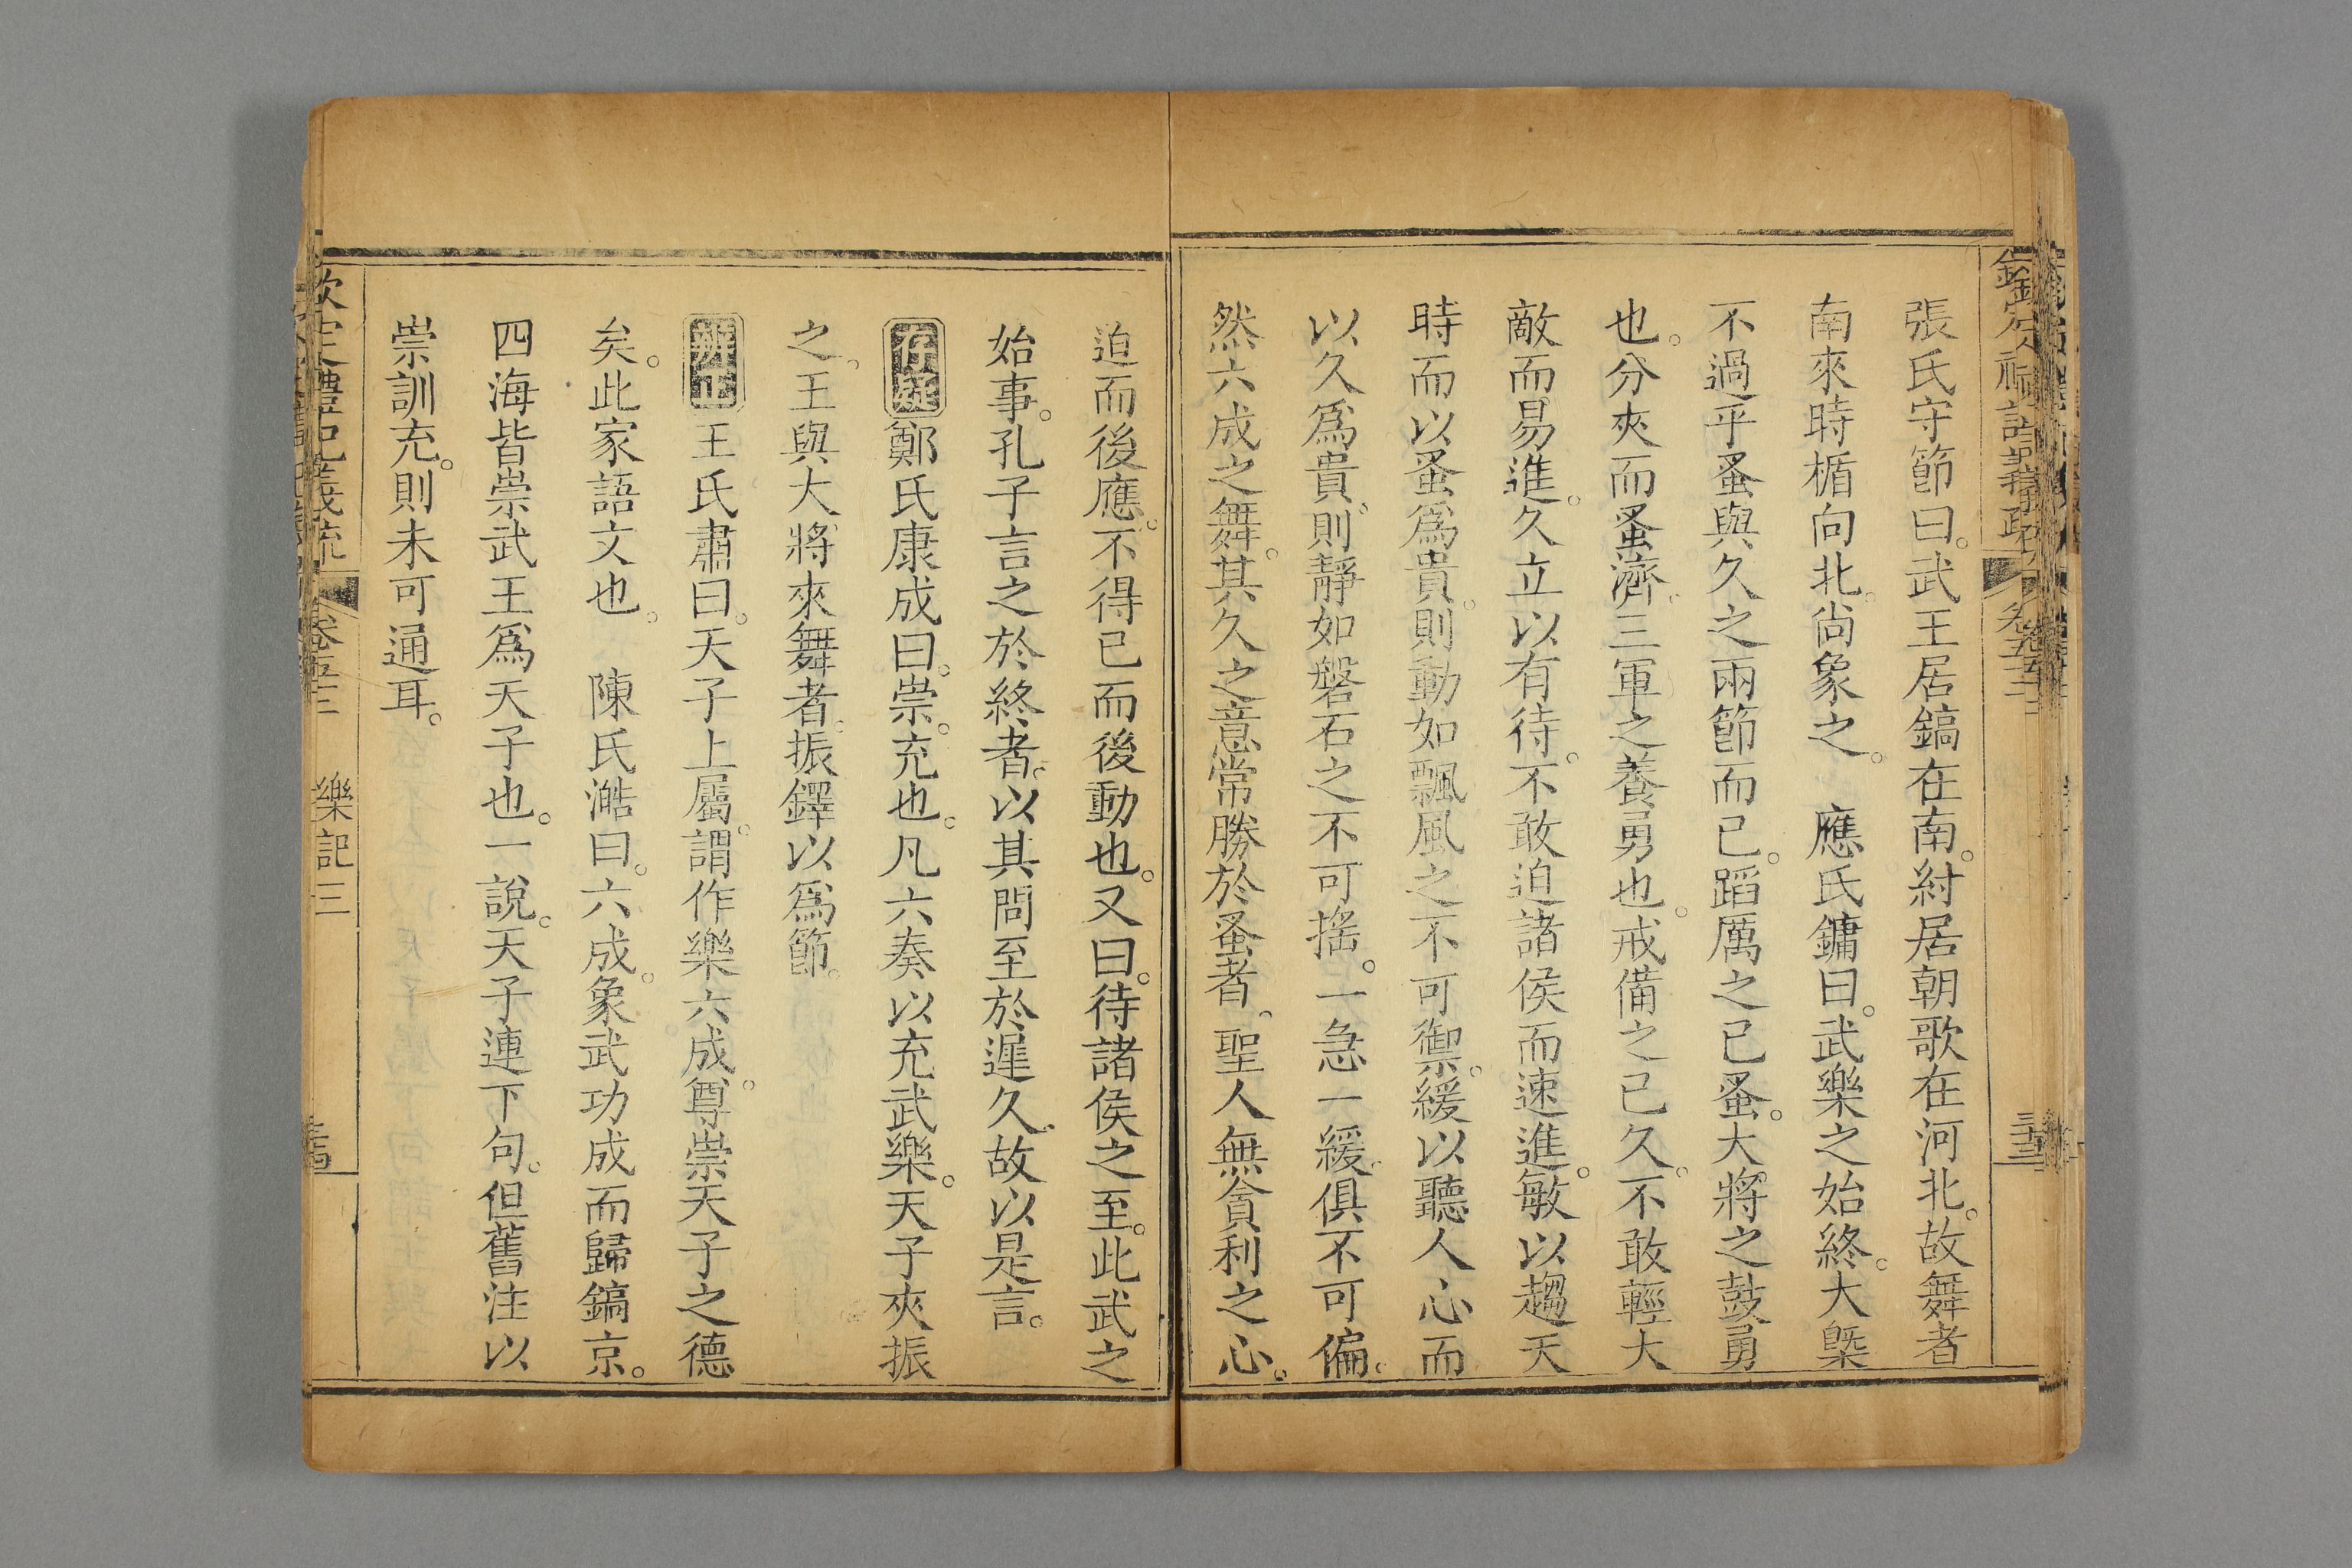 張氏守節曰。武王居鎬在南。紂居朝歌在河北。故舞者
南來時楯向北。尙象之。　應氏鏞曰。武樂之始終。大槩
不過乎蚤與久之兩節而已。蹈厲之已蚤。大將之鼓勇
也。分夾而蚤濟。三軍之養勇也。戒備之已久。不敢輕大
敵而易進。久立以有待。不敢迫諸侯而速進。敏以趨天
時而以蚤爲貴。則動如飄風之不可禦。緩以聽人心而
以久爲貴。則靜如磐石之不可搖。一急一緩。俱不可偏。
然六成之舞。其久之意常勝於蚤者。聖人無貪利之心。
迫而後應。不得已而後動也。又曰。待諸侯之至。此武之
始事。孔子言之於終者。以其問至於遲久。故以是言。
存疑鄭氏康成曰。崇。充也。凡六奏以充武樂。天子夾振
之。王與大將來舞者。振鐸以爲節。
辨正王氏肅曰。天子上屬。謂作樂六成。尊崇天子之德
矣。此家語文也。　陳氏澔曰。六成。象武功成而歸鎬京。
四海皆崇武王爲天子也。一說。天子連下句。但舊注以
崇訓充。則未可通耳。
欽定禮記義疏　卷五十二　樂記三